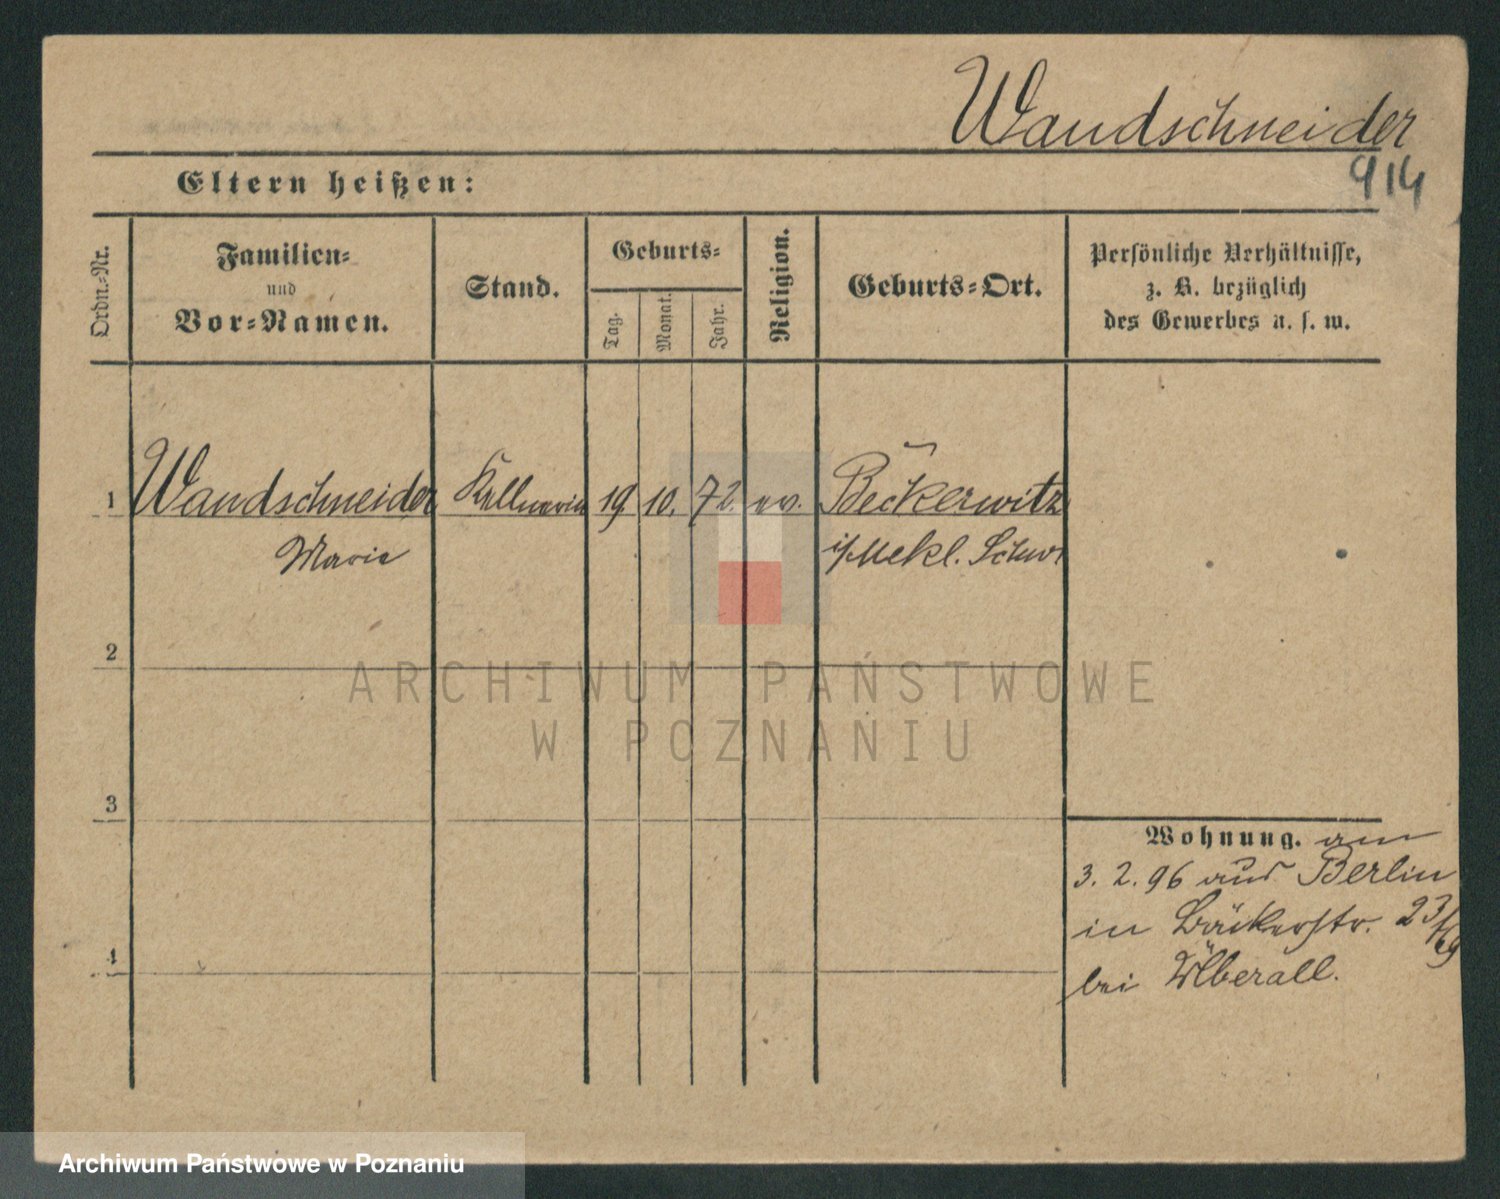 Wandschneider
914
Eltern heißen:
Ordn.-Nr.
Familien-
und
Vor-Namen.
Stand.
Geburts-
Tag.
Monat.
Jahr.
Religion.
Geburts-Ort.
Persönliche Verhältnisse,
z. B. bezüglich
des Gewerbes u. s. w.
1 Wandschneider Kellnerin 19 10. 72. ev. Beckerwitz
Marie i/Mekl. Schw.
2
ARCHIWUM PAŃSTWOWE
W POZNANIU
3
Wohnung. am
3. 2. 96 aus Berlin
in Bäckerstr. 23/
4
bei
Archiwum Państwowe w Poznaniu